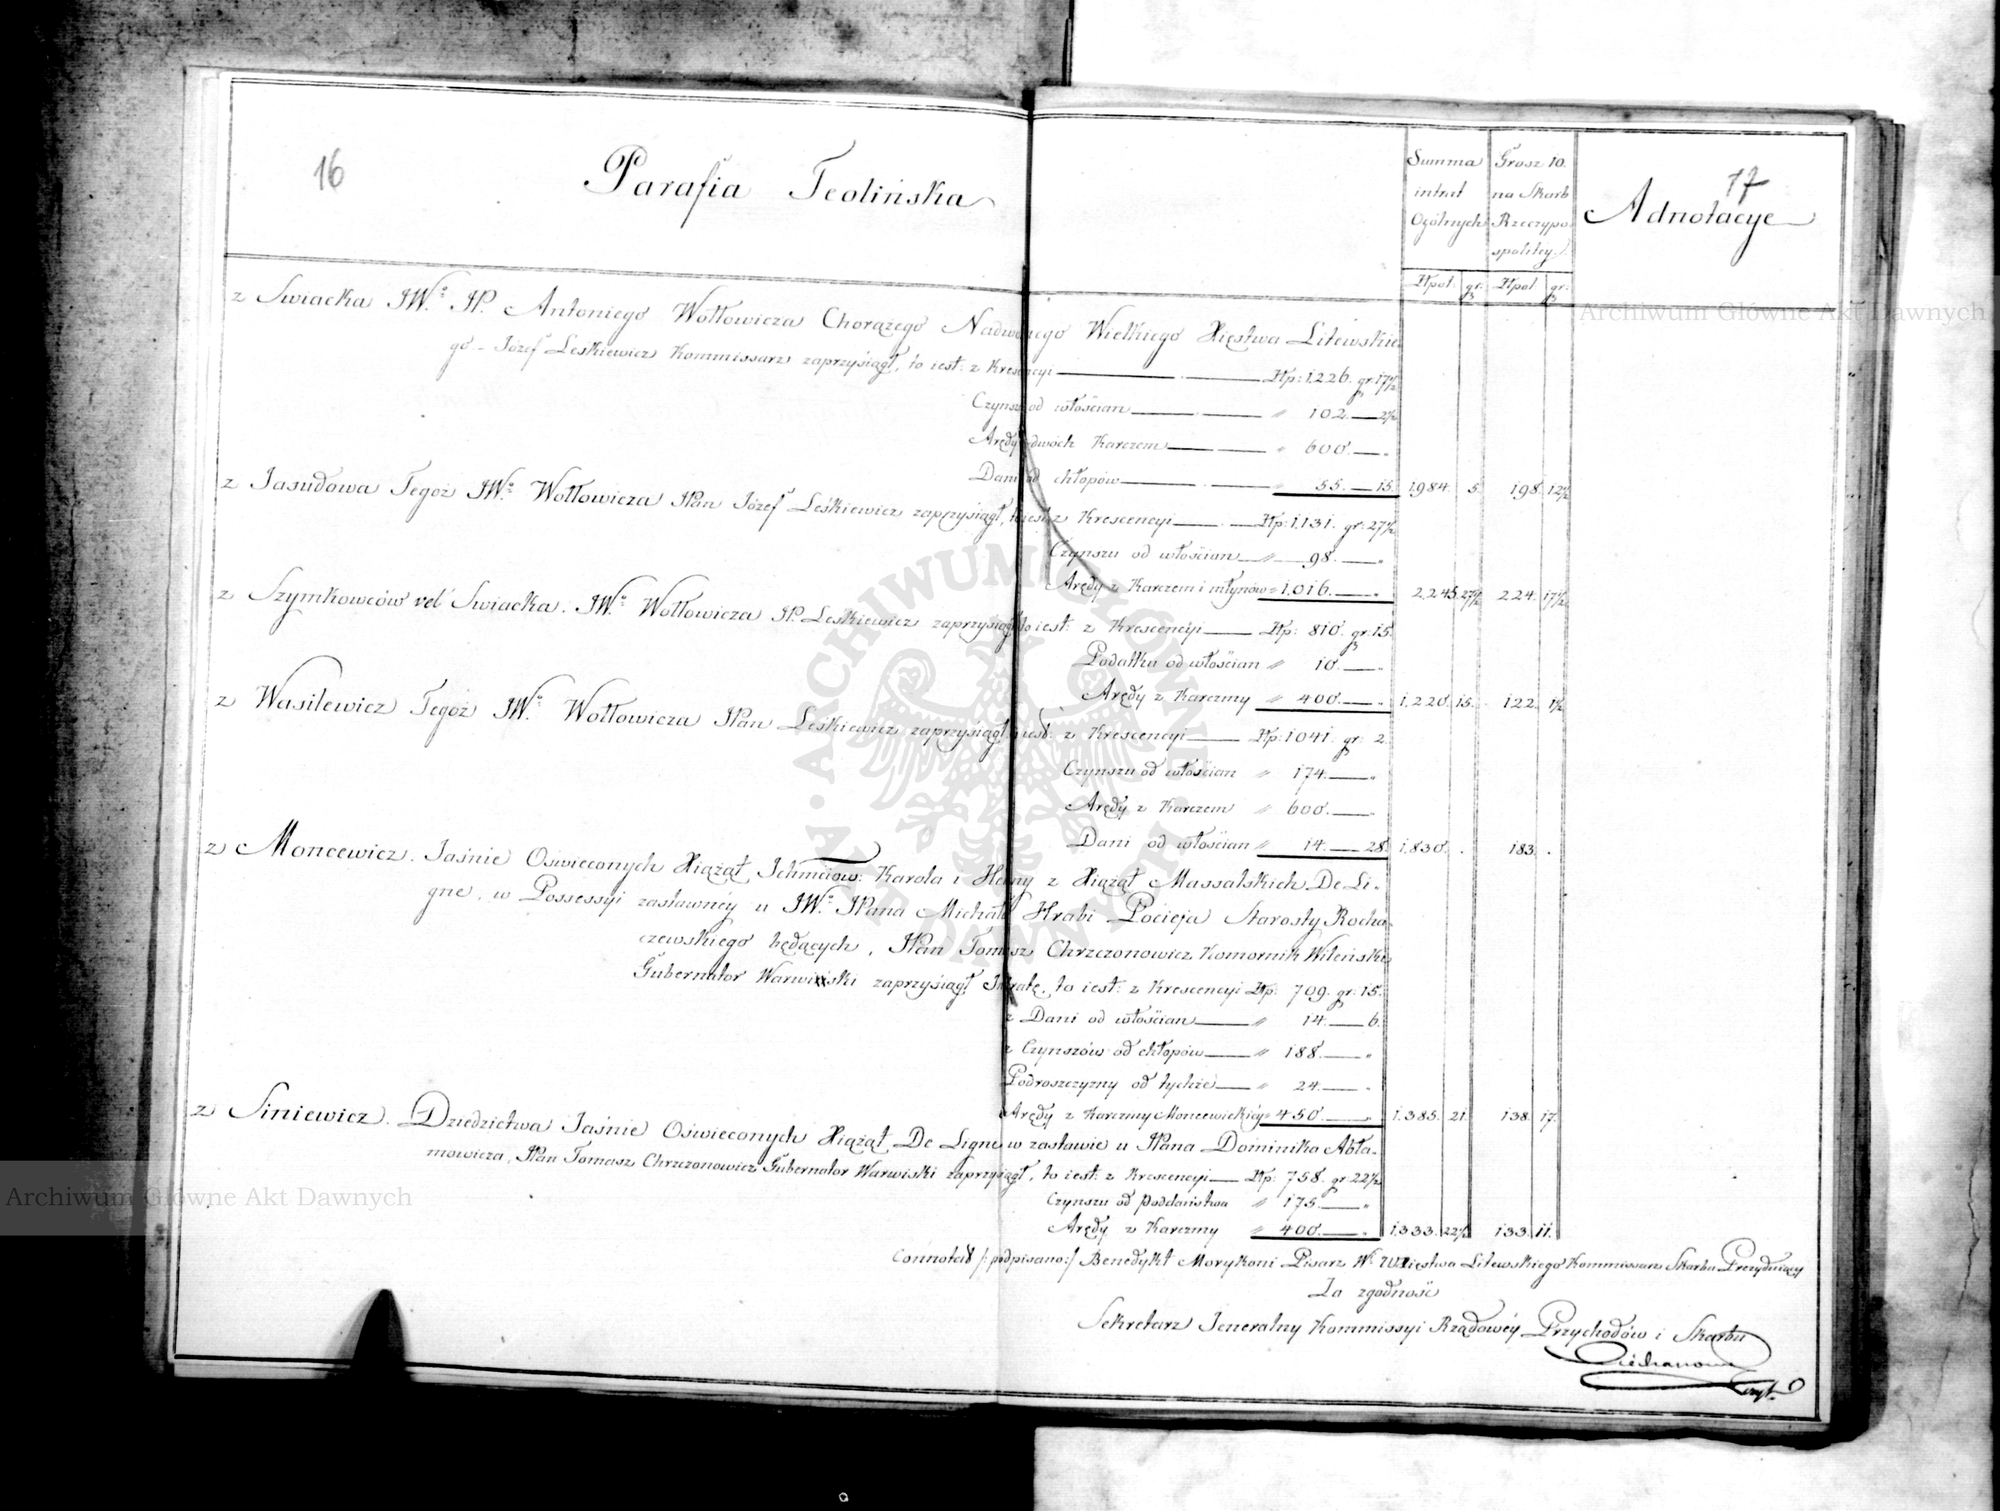 16
Parafia Teolińska
Summa intrat Ogólnych
Grosz 10. na Skarb Rzeczypospolitey.
17
Adnotacye
Złpol. gr: Złpol gr:
z Swiacka JW.º JP. Antoniego Wołłowicza Chorążego Nadwornego Wielkiego Xięstwa Litewskie
go – Józef Leskiewicz Kommissarz zaprzysiągł, to iest: z Krescencyi — Złp: 1,226. gr: 17½
Czynszu od włościan — „ 102. — 2½
Arędy dwóch Karczem — „ 600. — „
Dani od chłopów — „ 55. — 15. 1,984. 5. 198. 12½
z Jasudowa Tegoż JW.º Wołłowicza JPan Józef Leśkiewicz zaprzysiągł, to iest: z Krescencyi — Złp: 1,131. gr: 27½
Czynszu od włościan — „ — 98. — „
Arędy z Karczem i młynów „ 1,016. — „ 2,245. 27½ 224. 17½
z Szymkowców vel Swiacka. JW.º Wołłowicza JP. Leśkiewicz zaprzysiągł to iest: z Krescencyi — Złp: 810. gr: 15.
Podatku od włościan „ 10. — „
Arędy z Karczmy „ 400. — „ 1,220. 15. 122. 1½
z Wasilewicz Tegoż JW.º Wołłowicza JPan Leśkiewicz zaprzysiągł to iest: z Krescencyi — Złp: 1041. gr: 2.
Czynszu od włościan „ 174. — „
Arędy z Karczem „ 600. — „
Dani od włościan „ 14. — 28. 1,830. . 183. .
z Moncewicz. Jaśnie Oświeconych Xiążąt Ichmciow: Karola i Heleny z Xiążąt Massalskich De Li-
gne, w Possessyi zastawnéy u JW.º JPana Michała Hrabi Pocieja Starosty Rocha-
czewskiego będących, JPan Tomasz Chrzczonowicz Komornik Wileński
Gubernator Warwiski zaprzysiągł Intratę, to iest: z Krescencyi Złp: 709. gr: 15.
z Dani od włościan — „ 14. — 6.
z Czynszów od chłopów — „ 188. — „
Podroszczyzny od tychże — „ 24. — „
Arędy z Karczmy Moncewickiéy „ 450. — „ 1,385. 21. 138. 17.
z Siniewicz. Dziedzictwa Jaśnie Oświeconych Xiążąt De Ligne w zastawie u JPana Dominika Abła-
mowicza, JPan Tomasz Chrzczonowicz Gubernator Warwiski zaprzysiągł, to iest: z Krescencyi — Złp: 758. gr: 22½
Czynszu od poddaństwa „ 175. — „
Arędy z Karczmy „ 400. — „ 1,333. 22½ 133. 11.
Connotad /: podpisano :/ Benedykt Morykoni Pisarz W.º Xięstwa Litewskiego Kommissarz Skarbu Prezyduiący
Za zgodność
Sekretarz Jeneralny Kommissyi Rządowéy Przychodów i Skarbu
Archiwum Główne Akt Dawnych
Archiwum Główne Akt Dawnych